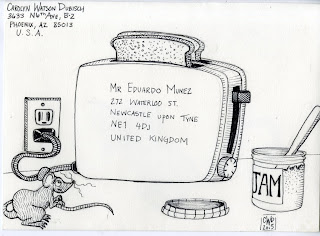 CAROLYN WATSON DUBISCH
3633 N 6TH AVE, B-2
PHOENIX, AZ 85013
U.S.A.
MR EDUARDO MUNEZ
272 WATERLOO ST.
NEWCASTLE UPON TYNE
NE1 4DJ
UNITED KINGDOM
JAM
CWD
2015